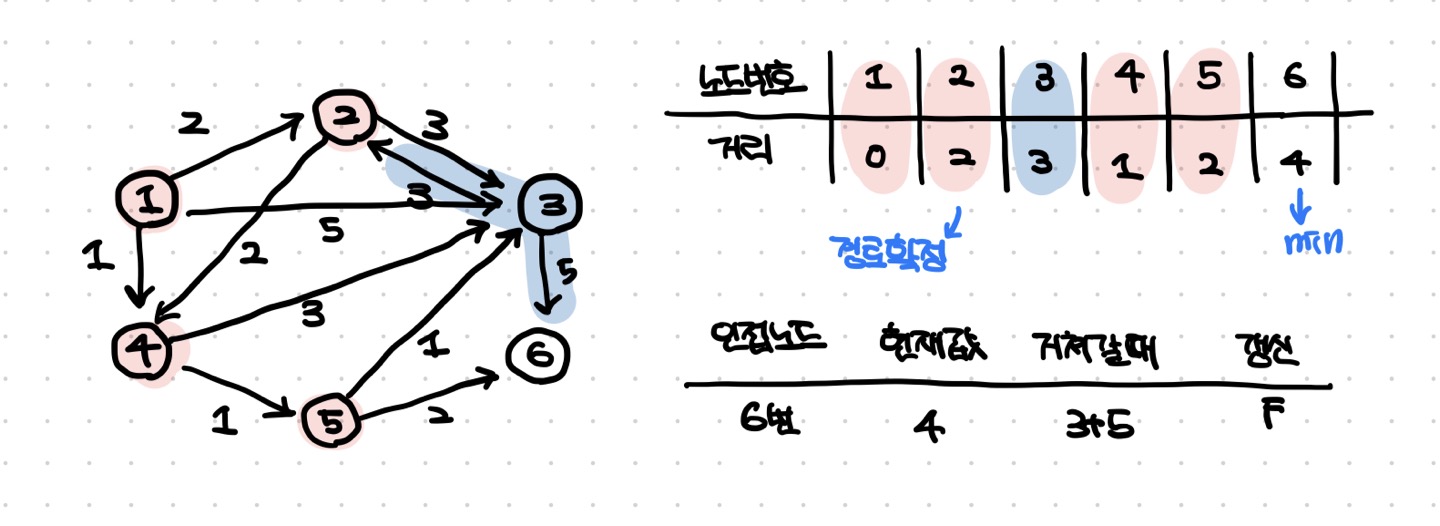 2
2
3
1
3
3
5
1
2
5
3
4
1
6
1
5
2
노드번호 1 2 3 4 5 6
거리 0 2 3 1 2 4
경로확정
min
인접노드 현재값 거쳐갈때 갱신
6번 4 3+5 F